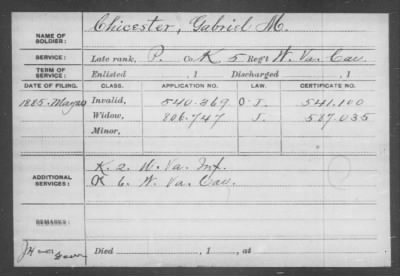 NAME OF SOLDIER: Chicester, Gabriel M.
SERVICE: Late rank, P. Co. K 5 Reg't W. Va. Cav.
TERM OF SERVICE: Enlisted , 1 Discharged , 1
DATE OF FILING. CLASS. APPLICATION NO. LAW. CERTIFICATE NO.
1885. May Invalid, 540.369 O J. 541.100
Widow, 806.747 J. 587.035
Minor,
ADDITIONAL SERVICES: K. 2. W. Va. Inf.
K 6. W. Va. Cav.
REMARKS:
Died , 1 , at